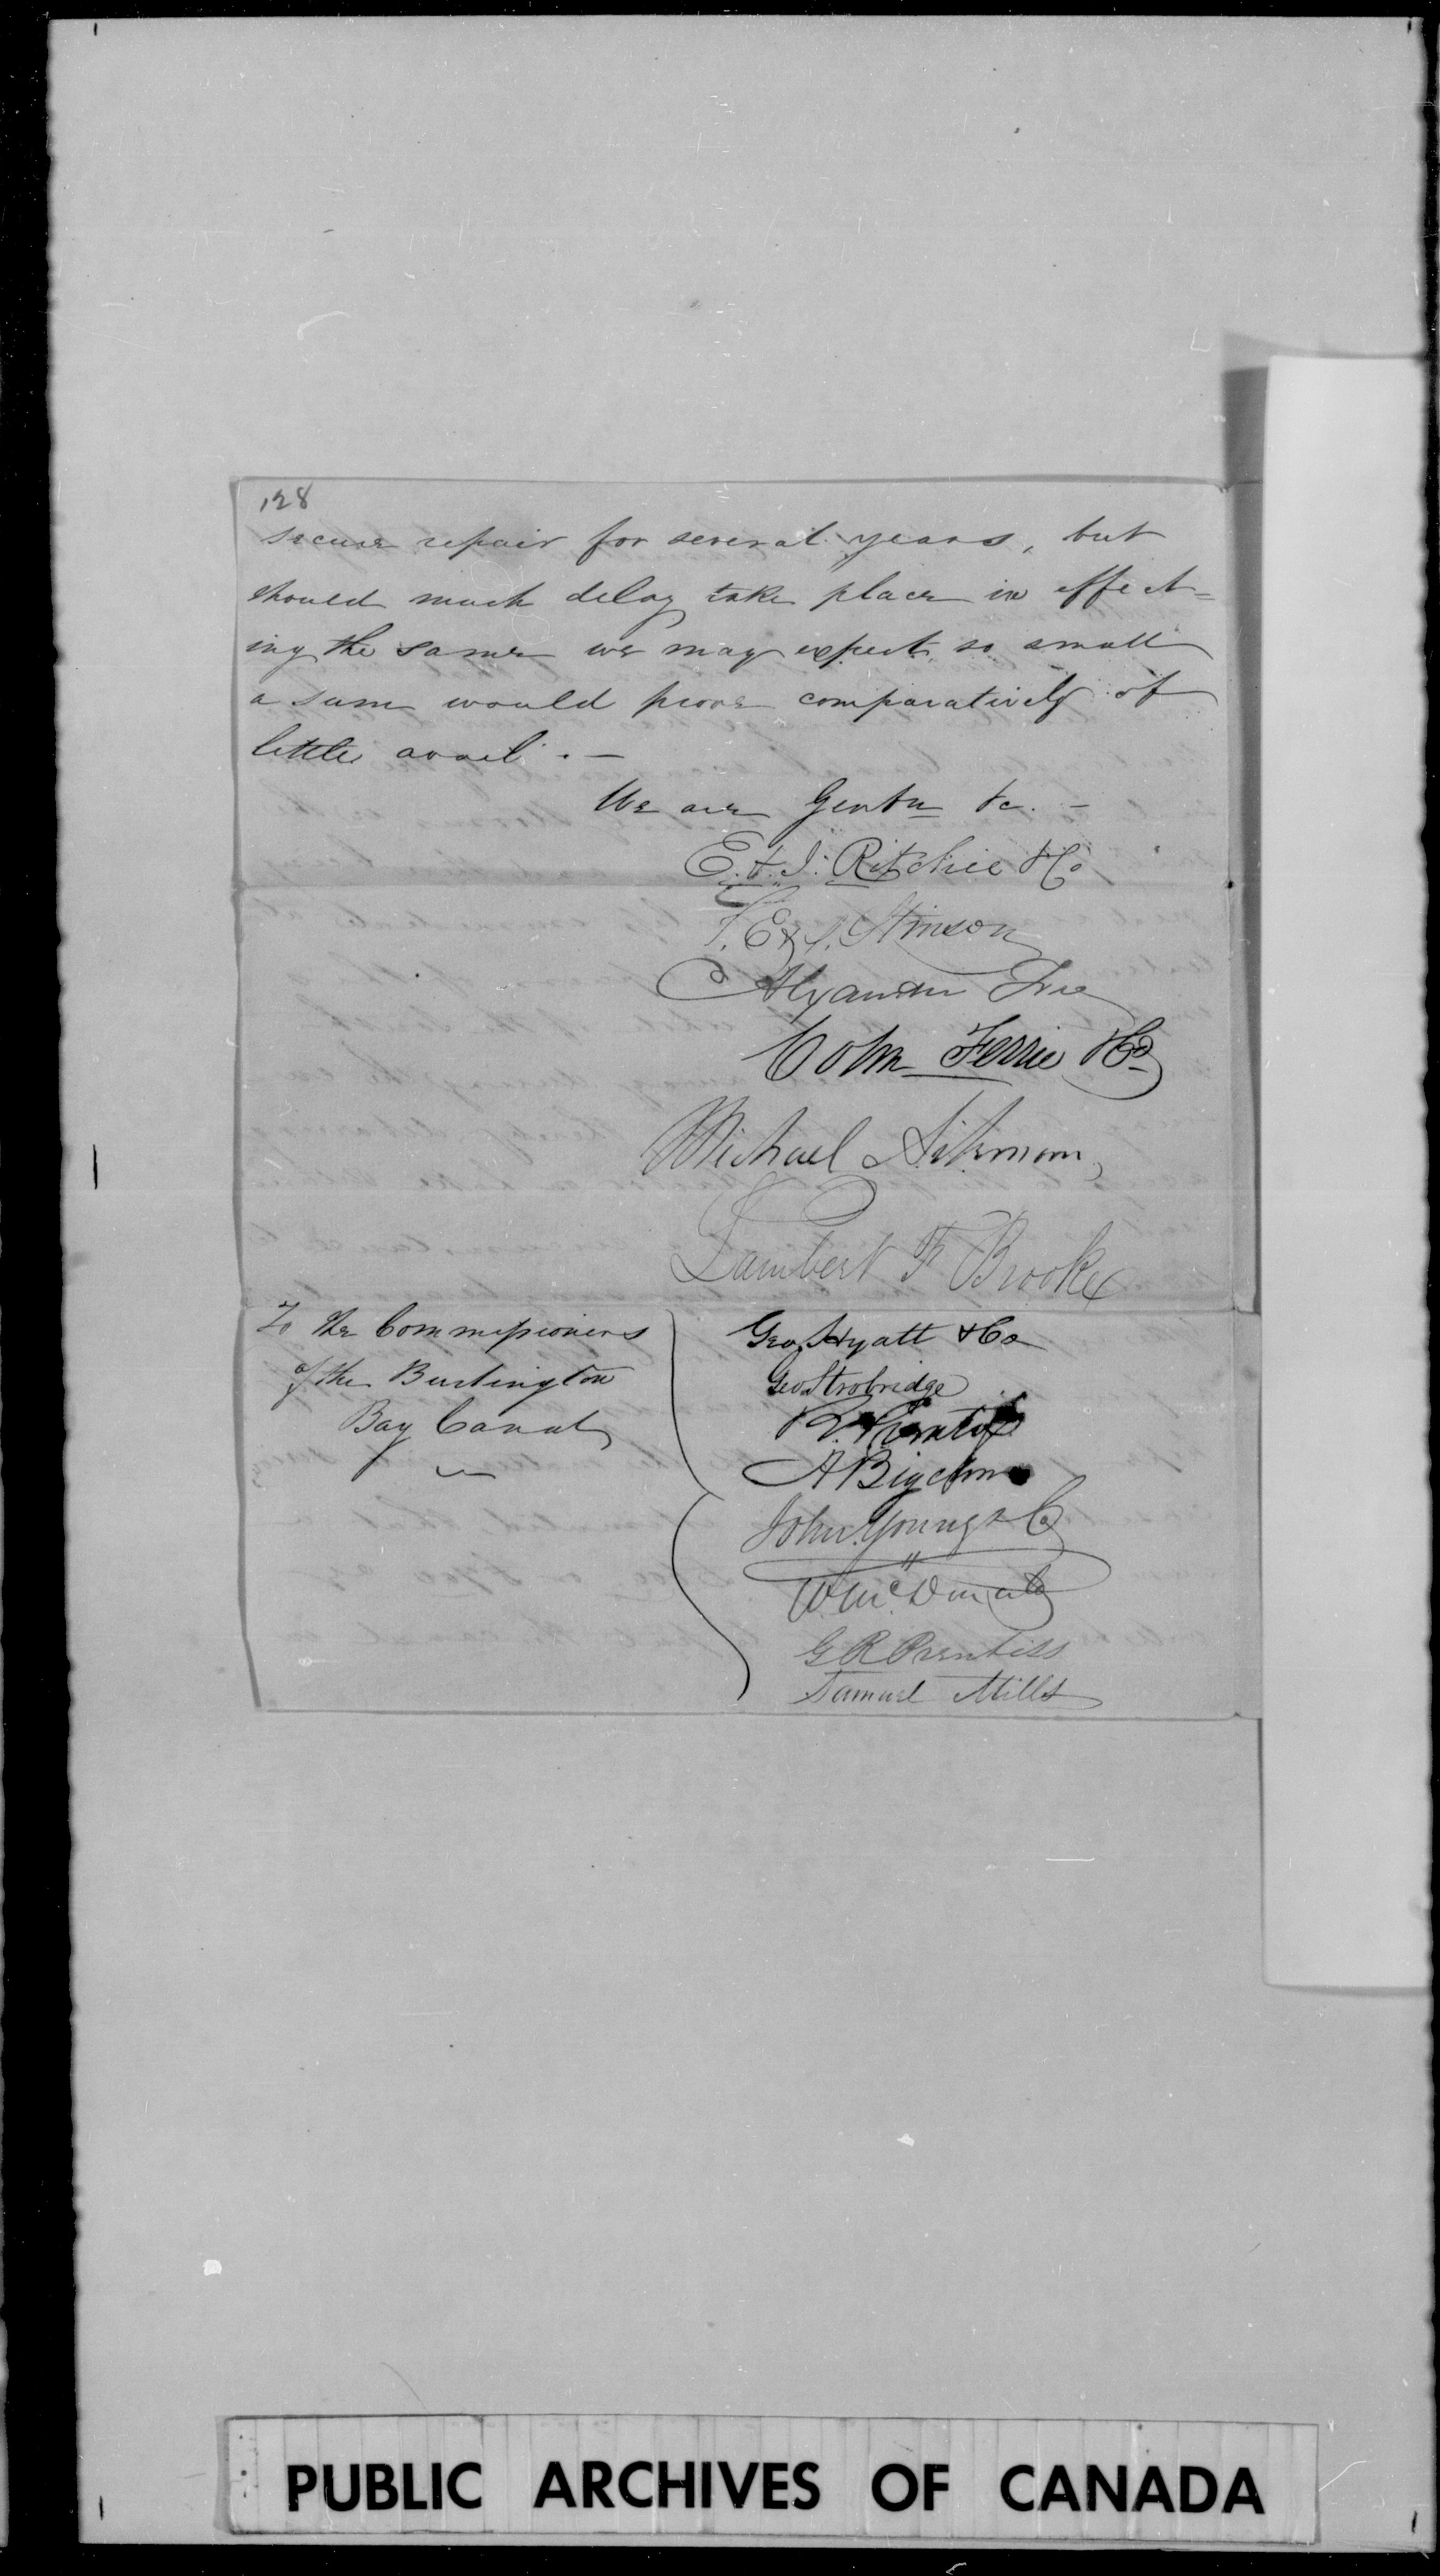 128
secure repair for several years, but
should much delay take place in effect=
ing the same we may expect so small
a sum would prove comparatively of
little avail. —
We are Gentn &c. —
E. & J. Ritchie & Co
T. E & J. Stinson
Alexander
Colin Ferrie & Co
Michael Aikman,
Lambert F Brooke
To the Commissioners
of the Burlington
Bay Canal
Geo. Hyatt & Co
Geo Strobridge
Prentiss
A Bigelow
John Young & Co
W McDonald
G R Prentiss
Samuel Mills
PUBLIC ARCHIVES OF CANADA